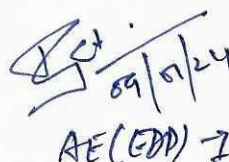 09/01/24
AE(EDP)-I